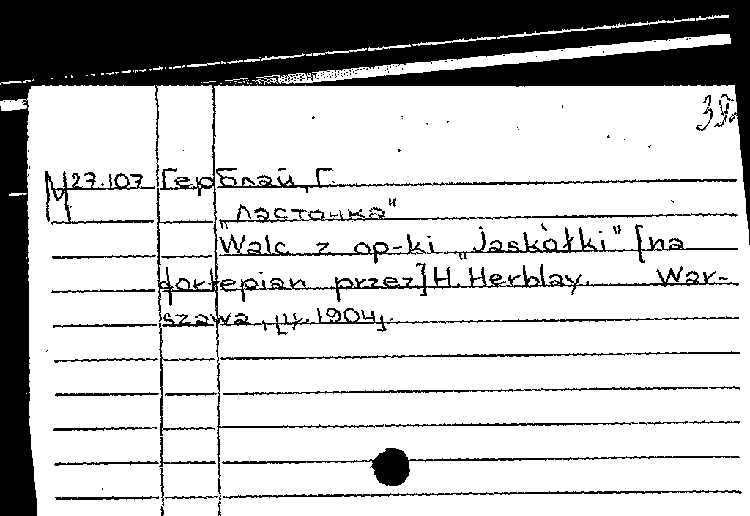 M 27.107 Герблай, Г.
„Ласточка"
Walc z op-ki „Jaskółki" [na
fortepian przez] H. Herblay. War-
szawa, 1904.